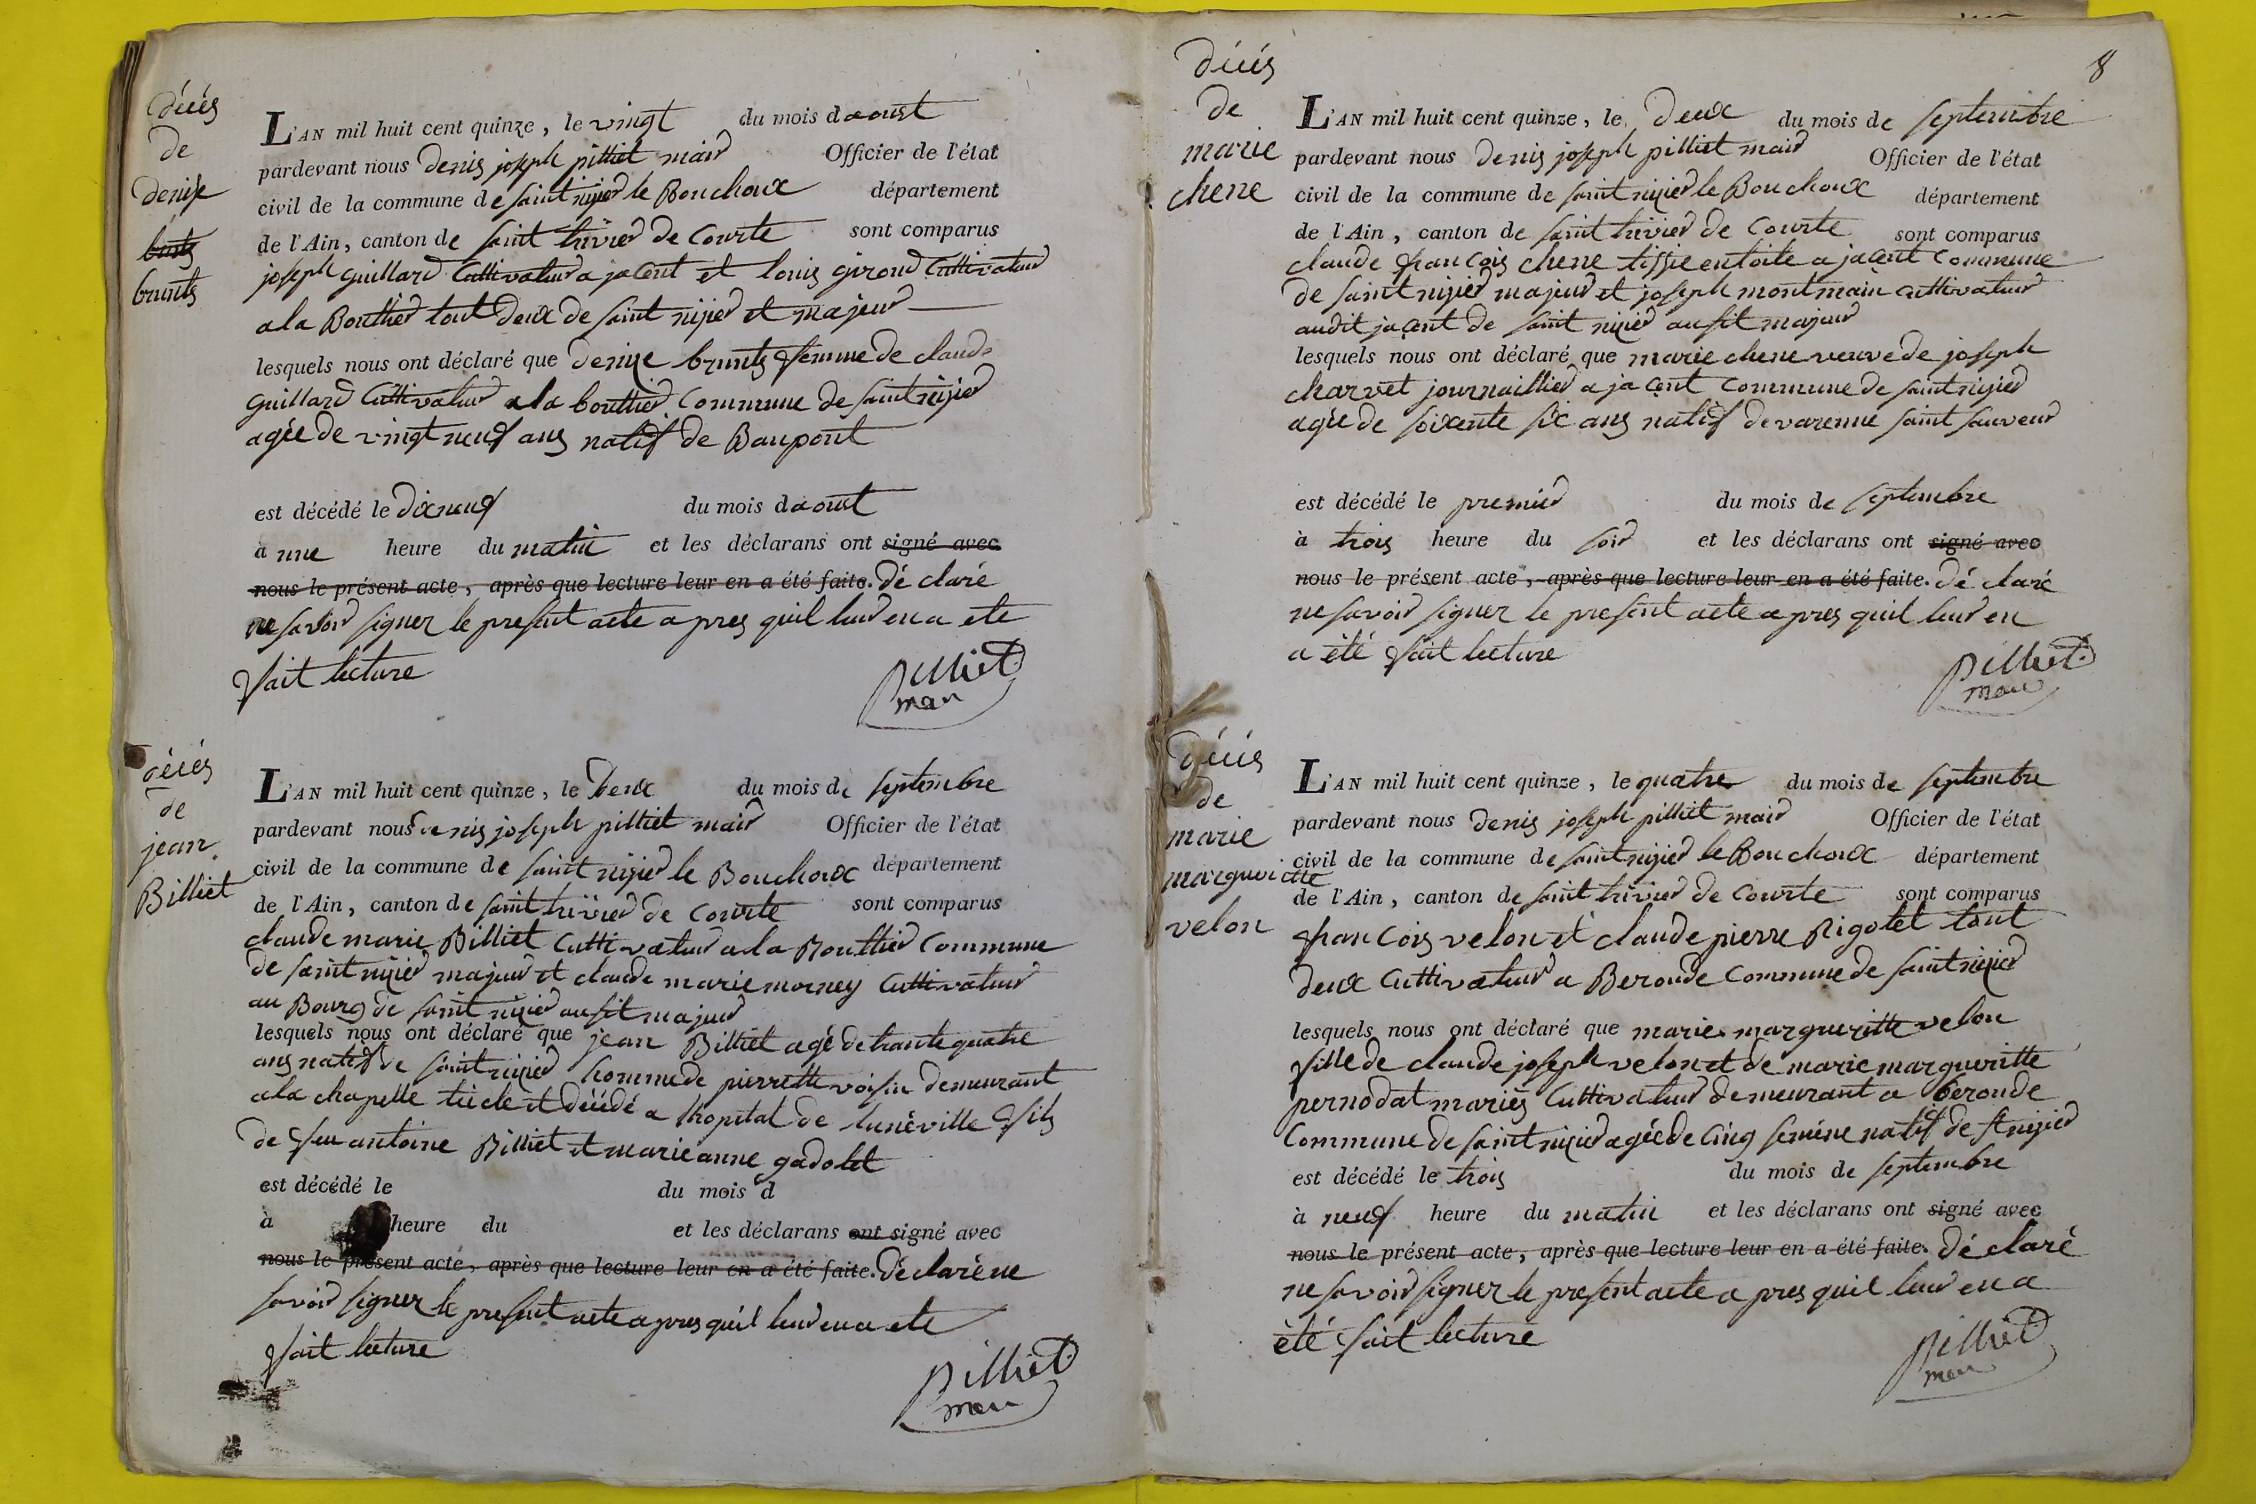 décés
de
denise
brunts
L'AN mil huit cent quinze, le vingt du mois daoust
pardevant nous denis joseph pilliet maire Officier de l'état
civil de la commune de saint nizier le Bouchoux département
de l'Ain, canton de saint trivier de Courte sont comparus
joseph guillard Cultivateur a jacent et louis giroud Cultivateur
a la Bouthier tout deux de saint nizier et majeur
lesquels nous ont déclaré que denize brunts femme de claude
guillard Cultivateur a la bouthier Commune de saint nizier
agée de vingt neuf ans natif de Baupont
est décédé le dixneuf du mois daoust
à une heure du matin et les déclarans ont signé avec
nous le présent acte, après que lecture leur en a été faite. dé claré
ne savoir signer le present acte a pres quil leur en a ete
fait lecture
Pilliet
maire
décés
de
jean
Billiet
L'AN mil huit cent quinze, le deux du mois de septembre
pardevant nous denis joseph pilliet maire Officier de l'état
civil de la commune de saint nizier le Bouchoux département
de l'Ain, canton de saint trivier de Courte sont comparus
claude marie Billiet Cultivateur a la Bouthier Commune
de saint nizier majeur et claude marie morney Cultivateur
au Bourg de saint nizier ausit majeur
lesquels nous ont déclaré que jean Billiet agé de trante quatre
ans natif de saint nizier homme de pierrette voisin demeurant
a la chapelle técle et décédé a lhopital de lunéville fils
de feu antoine Billiet et marie anne gadolet
est décédé le du mois d
à heure du et les déclarans ont signé avec
nous le présent acte, après que lecture leur en a été faite. déclaré ne
savoir signer le present acte a pres quil leur en a ete
fait lecture
Pilliet
maire
8
décés
de
marie
chene
L'AN mil huit cent quinze, le deux du mois de septembre
pardevant nous denis joseph pilliet maire Officier de l'état
civil de la commune de saint nizier le Bouchoux département
de l'Ain, canton de saint trivier de Courte sont comparus
claude francois chene tissie en toile a jacent Commune
de saint nizier majeur et joseph montmain cultivateur
audit jacent de saint nizier ausit majeur
lesquels nous ont déclaré que marie chene veuve de joseph
charvet journaillier a jacent Commune de saint nizier
agée de soixante six ans natif de varenne saint sauveur
est décédé le premier du mois de septembre
à trois heure du soir et les déclarans ont signé avec
nous le présent acte, après que lecture leur en a été faite. dé claré
ne savoir signer le present acte a pres quil leur en
a été fait lecture
Pilliet
maire
décés
de
marie
margueritte
velon
L'AN mil huit cent quinze, le quatre du mois de septembre
pardevant nous denis joseph pilliet maire Officier de l'état
civil de la commune de saint nizier le Bouchoux département
de l'Ain, canton de saint trivier de Courte sont comparus
francois velon et claude pierre Rigolet tout
deux Cultivateur a Beronde Commune de saint nizier
lesquels nous ont déclaré que marie margueritte velon
fille de claude joseph velon et de marie margueritte
pernodat mariés Cultivateur demeurant a beronde
Commune de saint nizier agée de cinq seméne natif de st nizier
est décédé le trois du mois de septembre
à neuf heure du matin et les déclarans ont signé avec
nous le présent acte, après que lecture leur en a été faite. dé claré
ne savoir signer le present acte a pres quil leur en a
été fait lecture
Pilliet
maire